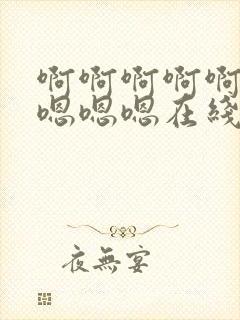 啊啊啊啊啊
嗯嗯嗯在綫
夜無宴